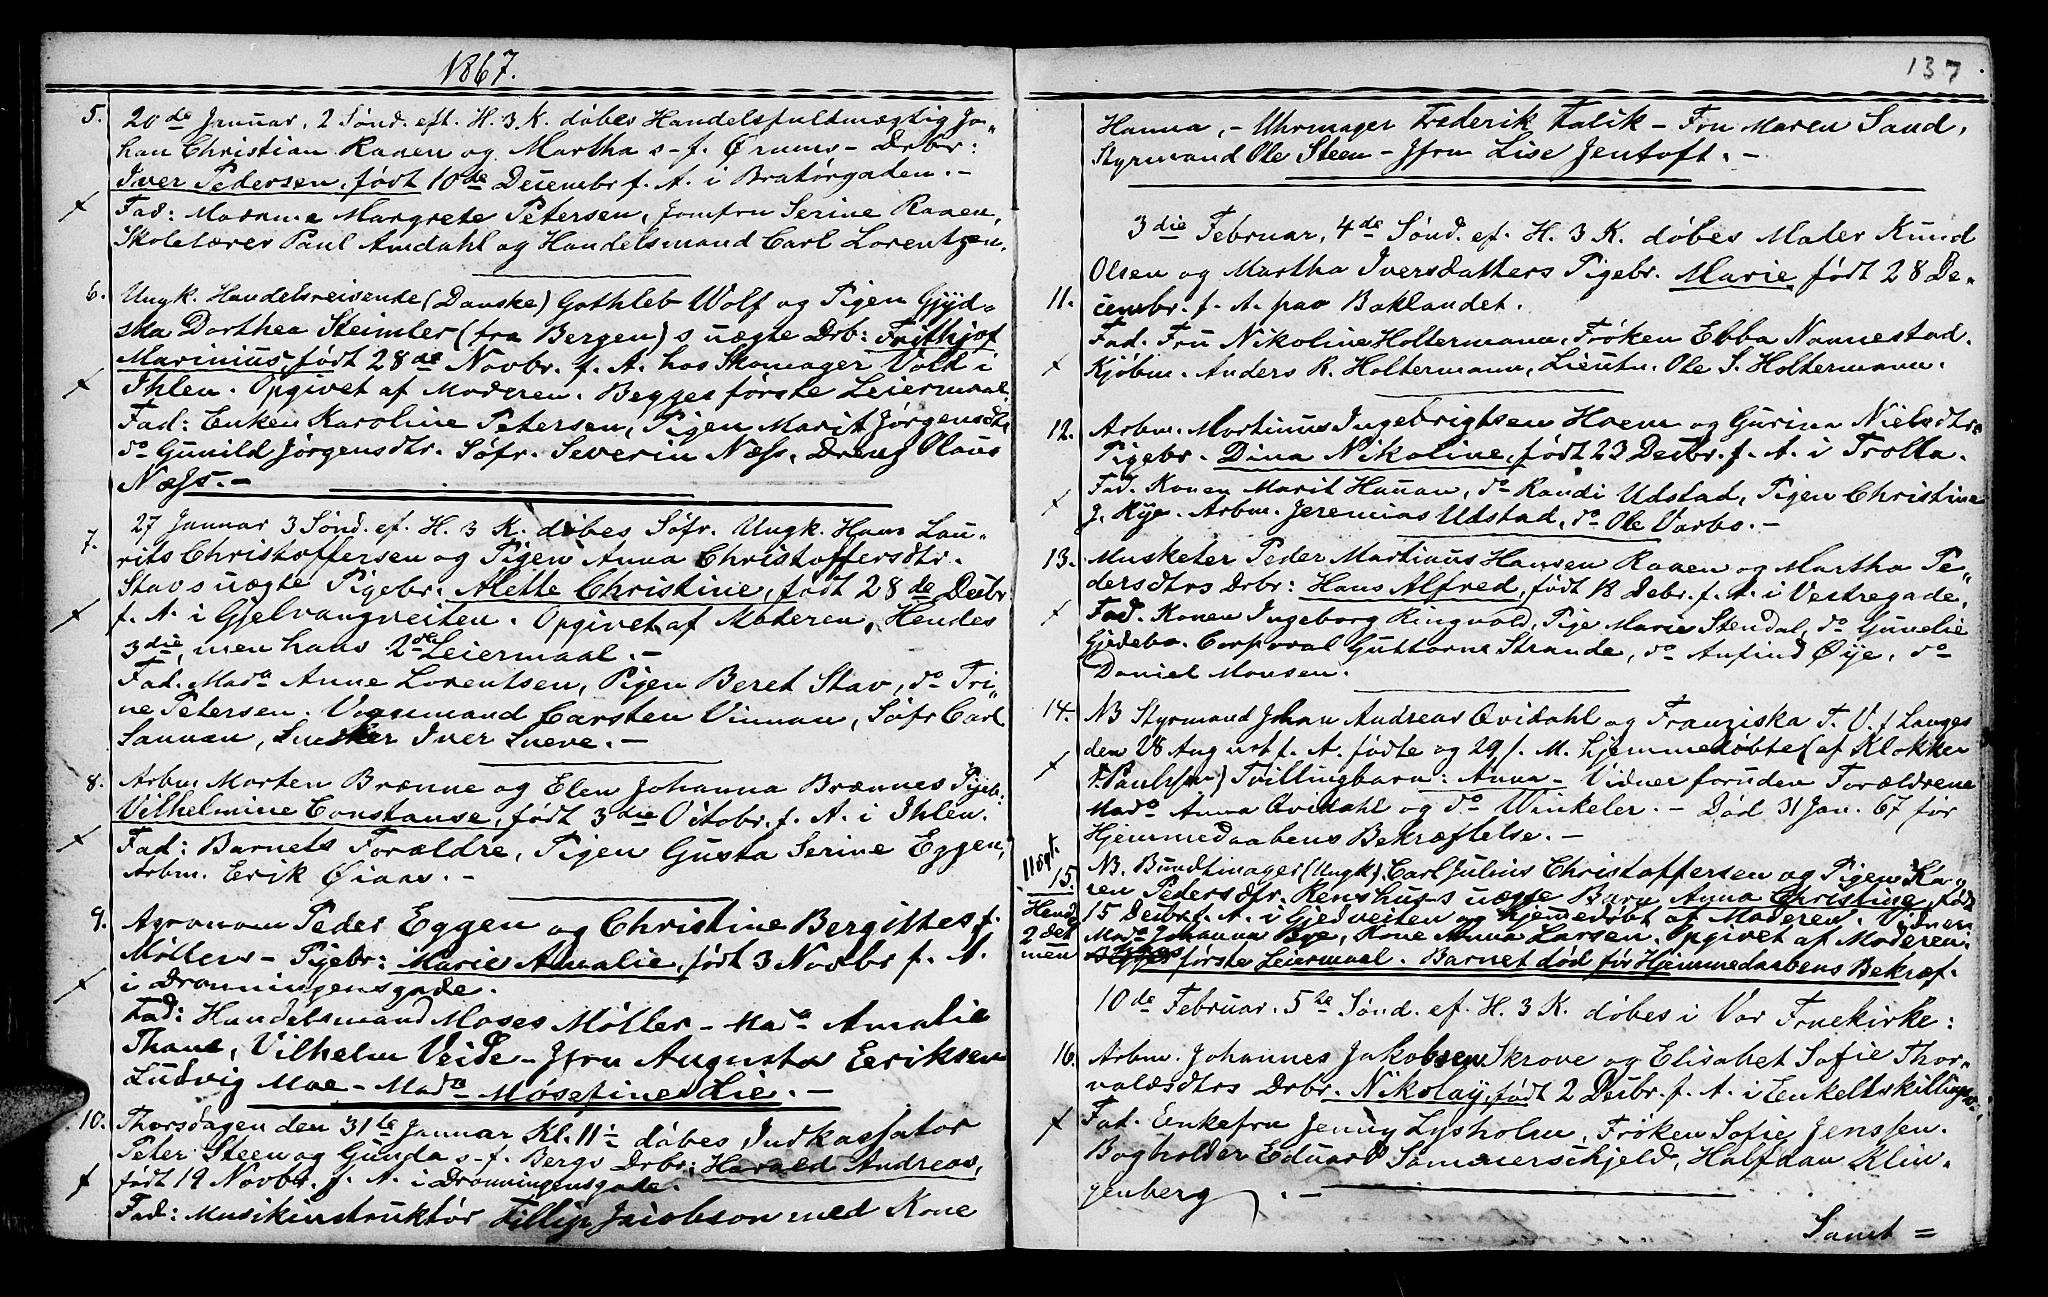 1867.
5. 20de Januar, 2 Sønd. eft. H. 3 K. døbes Handelsfuldmægtig Jo„
han Christian Raaen og Martha s-f. Ørums- Drbr:
Iver Pedersen, født 10de Decembr f. A. i Bratørgaden.-
Fad: Madame Margrete Petersen, Jomfru Serine Raaen,
Skolelærer Paul Amdahl og Handelsmand Carl Lorentzen.
6. Ungk. Handelsreisende (Danske) Gothleb Wolf og Pigen Gjyd„
ska Dorthea Steimler (fra Bergen) s uægte Drb: Frithjof
Marinius, født 28de Novbr. f. A. hos Skomager Volt i
Ihlen. Opgivet af Moderen. Begges første Leiermaal.
Fad: Enken Karoline Petersen, Pigen Marit Jørgensdtr,
do Gunild Jørgensdtr. Søfr. Severin Næss, Dreng Olaus
Næss.-
7. 27 Januar 3 Sønd. ef. H. 3 K. døbes Søfr. Ungk. Hans Lau„
rits Christoffersen og Pigen Anna Christoffersdtr.
Stavs uægte Pigebr. Alette Christine, født 28de Decbr
f. A. i Gjelvangveiten. Opgivet af Moderen, Hendes
3die, men hans 2det Leiermaal.-
Fad. Mada Anne Lorentsen, Pigen Beret Stav, do Tri„
ne Petersen. Vognmand Carsten Vinnan, Søfr Carl
Sannan, Snedker Iver Sneve.-
8. Arbm Morten Brænne og Elen Johanna Brænnes Pigeb:
Vilhelmine Constanse, født 3die Octobr. f. A. i Ihlen.
Fad: Barnets Forældre, Pigen Gusta Serine Eggen,
Arbm. Erik Øiaas.-
9. Agronom Peder Eggen og Christine Bergittes f.
Møllers- Pigebr: Marie Amalie, født 3 Novbr f. A.
i Dronningensgade.
Fad: Handelsmand Moses Møller- Mada Amalie
Thane, Vilhelm Veide- Jfru Augusta Eeriksen
Ludvig Moe- Mada Mosefine Lie.-
10. Thorsdagen den 31te Januar Kl. 11½ døbes Indkassator
Peter Steen og Gunda s-f. Bergs Drbr: Harald Andreas,
født 19 Novbr. f. A. i Dronningensgade.
Fad: Musikinstruktør Fillip Jacobson med Kone
137
Hanna,- Uhrmager Frederik Falik- Fru Maren Sand,
Styrmand Ole Steen- Jfru Lise Jentoft.-
3die Februar, 4de Sønd. ef. H. 3 K. døbes Maler Knud
Olsen og Martha Iversdatters Pigebr. Marie, født 28 De„
11. cembr. f. A. paa Baklandet.
Fad. Fru Nikoline Holtermann, Frøken Ebba Nannestad.
Kjøbm. Anders R. Holtermann, Lieutn. Ole S. Holtermann.
12. Arbm. Martinus Ingebrigtsen Hoem og Gurina Nielsdtrs
Pigebr. Dina Nikoline, født 23 Decbr. f. A. i Trolla.
Fad. Konen Marit Hanan, do Randi Udstad, Pigen Christine
J. Kye. Arbm. Jeremias Udstad, do Ole Varbo.-
13. Musketer Peder Martinus Hansen Raaen og Martha Pe„
dersdtrs Drbr: Hans Alfred, født 18 Debr. f. A. i Vestregade,
Fad. Konen Ingeborg Ringvold, Pige Marie Stendal, do Gunelie
Gjedebo. Corporal Guttorm Strande, do Anfind Øye, do
Daniel Monsen.
14. NB Styrmand Johan Andreas Qvidahl og Franziska T. V. f Langes
den 28 August f. A. fødte og 29 s. M. hjemmedøbte (af Klokker
Paulsen) Tvillingbarn: Anna- Vidner foruden Forældrene
Mado Anna Qvidahl og do Winkeler.- Død 31 Jan. 67 før
Hjemmedaabens Bekræftelse.-
15. NB. Bundtmager (Ungk) Carl Julius Christoffersen og Pigen Ka„
ren Pedersdtr. Renshus-s uægte Barn Anna Christine, født
15 Decbr f. A. i Gjedveiten og hjemedøbt af Moderen. Vidner
Mada Johanna Bye, Kone Anna Larsen. Opgivet af Moderen.
første Leiermaal. Barnet død før Hjemmedaabens Bekræf.
Hend.
2det
men
10de Februar. 5te Sønd. ef. H. 3 K. døbes i Vor Fruekirke:
16. Arbm. Johannes Jakobsen Skrove og Elisabet Sofie Thor„
valdsdtrs Drbr. Nikolay, født 2 Decbr. f. A. i Enkeltskillingsv.
Fad. Enkefru Jenny Lysholm, Frøken Sofie Jenssen.
Bogholder Eduard Sommerschjeld, Halfdan Klin„
genberg.-
Samt =